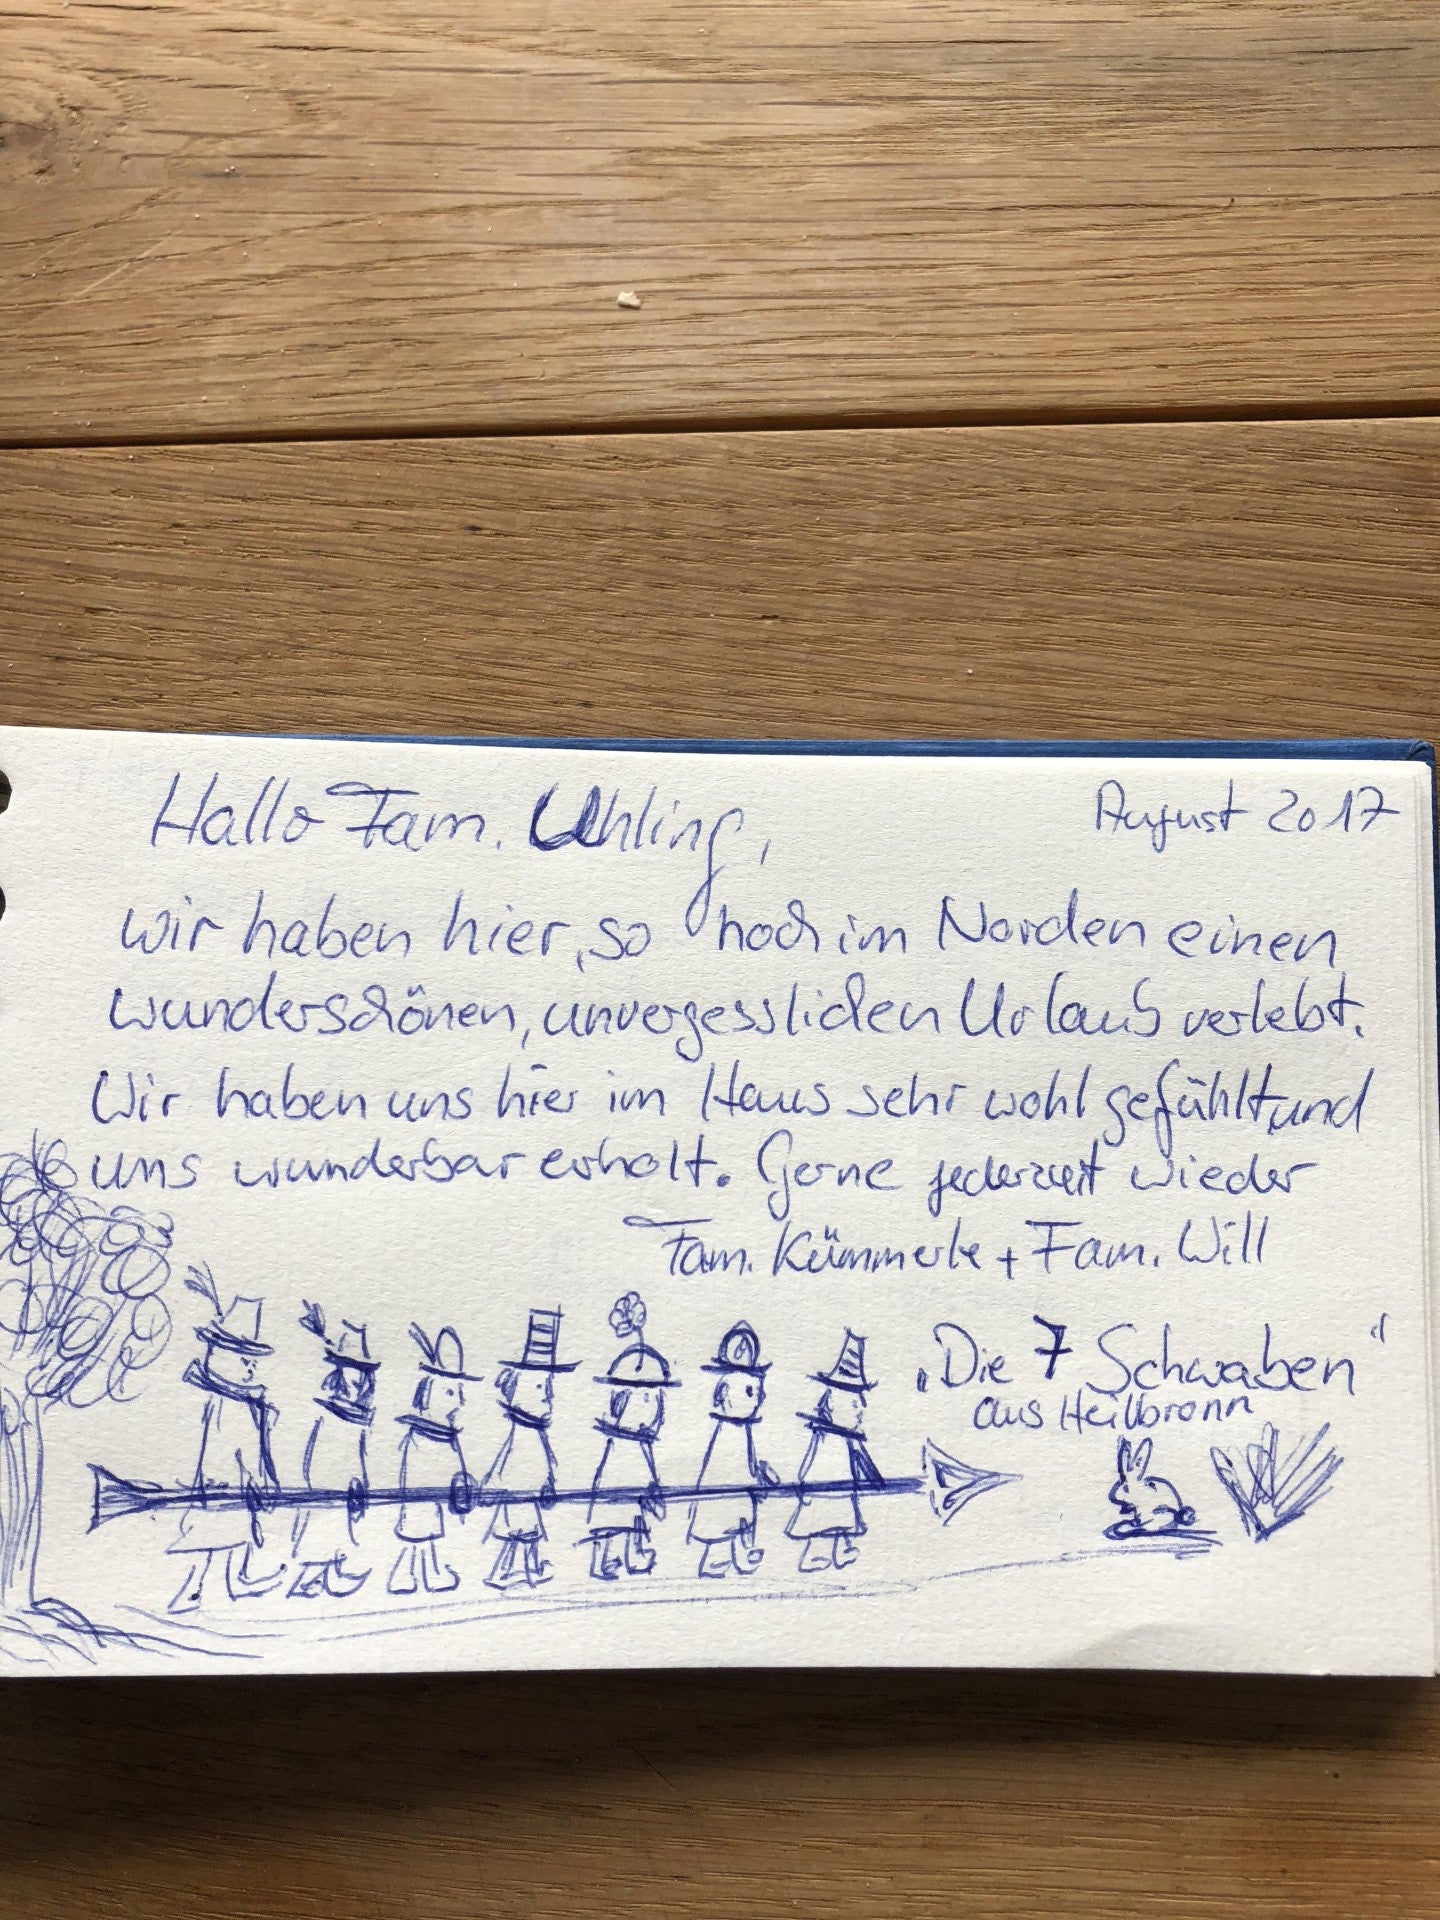 Hallo Fam. Uhling,
August 2017
wir haben hier, so hoch im Norden einen
wunderschönen, unvergesslichen Urlaub verlebt.
Wir haben uns hier im Haus sehr wohl gefühlt, und
uns wunderbar erholt. Gerne jederzeit wieder
Fam. Kümmerle + Fam. Will
„Die 7 Schwaben"
aus Heilbronn